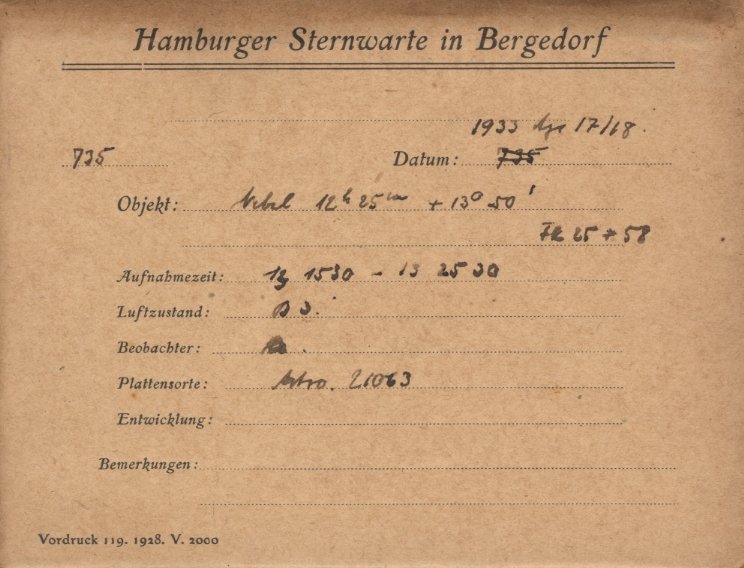 Hamburger Sternwarte in Bergedorf
1933 Apr 17/18.
735 Datum: 735
Objekt: Nebel 12h 25m + 13° 50'
25 + 58
Aufnahmezeit: 15 30 - 13 25 30
Luftzustand: 3.
Beobachter:
Plattensorte: Astro. 21063
Entwicklung:
Bemerkungen:
Vordruck 119. 1928. V. 2000